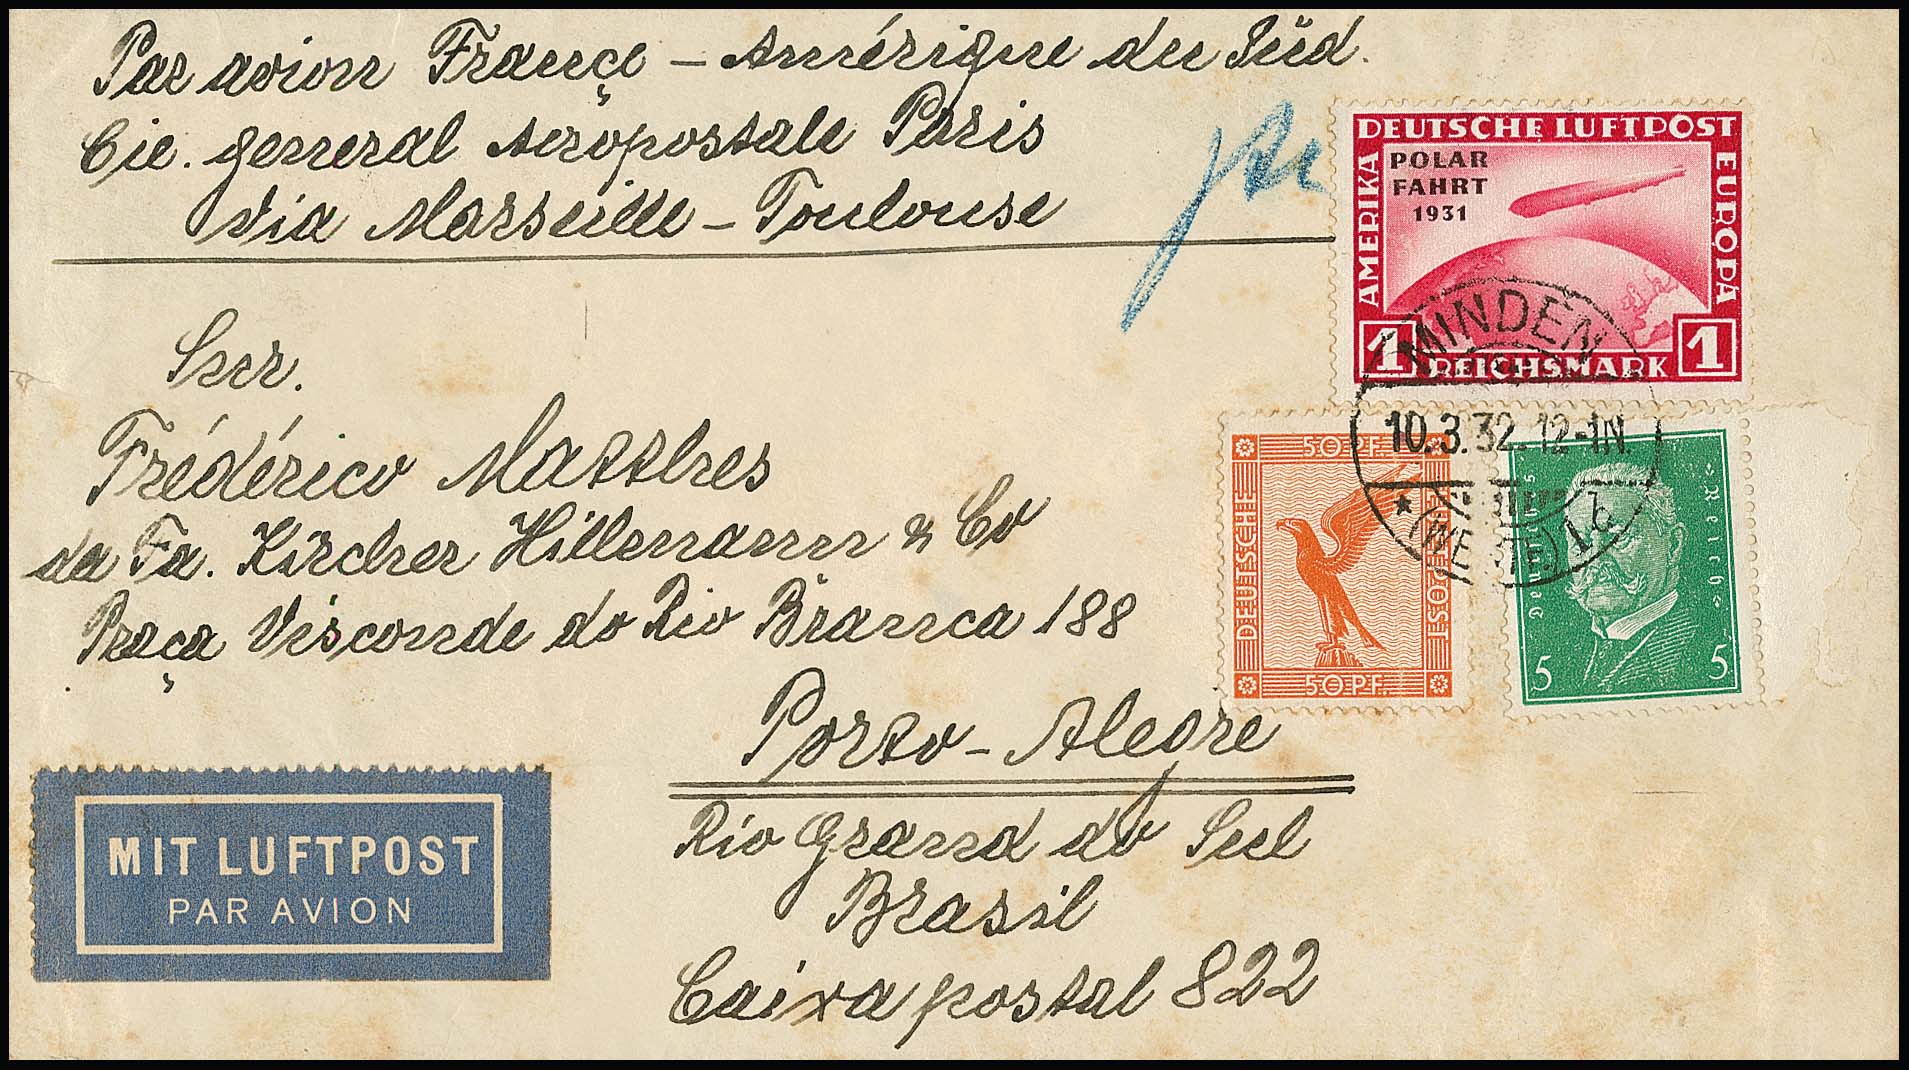 Par avion França – Amérique du Süd.
Cie. general Aeropostale Paris
Via Marseille – Toulouse
DEUTSCHE LUFTPOST
AMERIKA
EUROPA
POLAR
FAHRT
1931
1 REICHSMARK 1
MINDEN
10.3.32. 12-1N.
* (WESTF.) 1b
50 PF.
DEUTSCHE
50 PF.
Deutsches
Reich
5 5
Snr.
Frédérico Matthes
da Fa. Kircher Hillemann & Co
Praça Visconde do Rio Branca 188
Porto-Alegre
Rio Grand do Sul
Brasil
Caixa postal 822
MIT LUFTPOST
PAR AVION